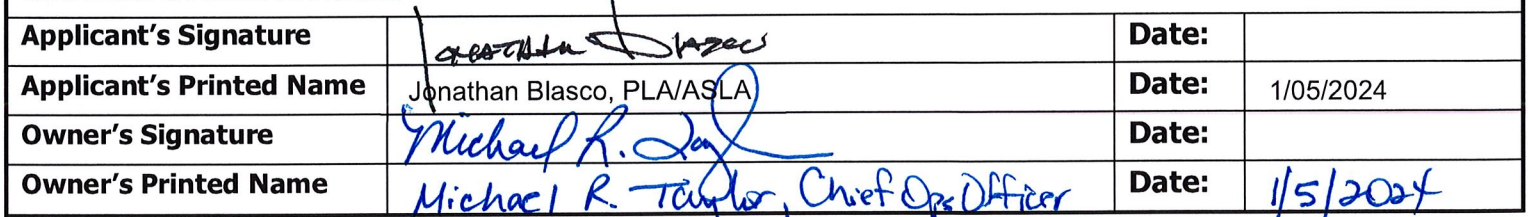 Applicant's Signature Jonathan Blasco Date:
Applicant's Printed Name Jonathan Blasco, PLA/ASLA Date: 1/05/2024
Owner's Signature Michael R. Tayl Date:
Owner's Printed Name Michael R. Taylor, Chief Ops Officer Date: 1/5/2024